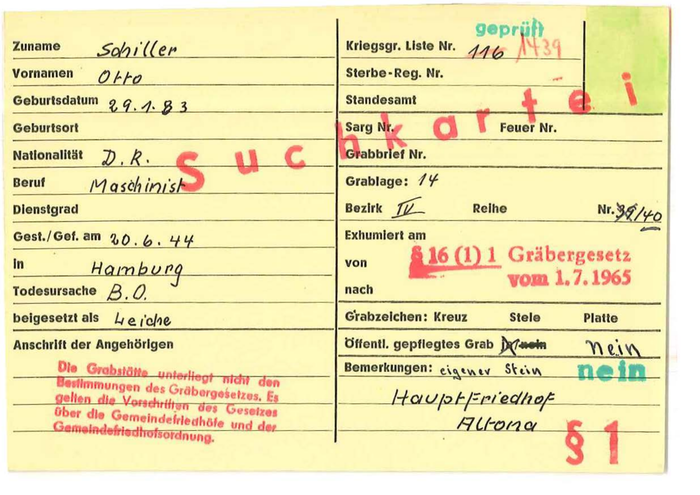 Zuname Schiller
Vornamen Otto
Geburtsdatum 29.1.83
Geburtsort
Nationalität D.R.
Beruf Maschinist
Dienstgrad
Gest./Gef. am 20.6.44
in Hamburg
Todesursache B.O.
beigesetzt als Leiche
Anschrift der Angehörigen
Die Grabstätte unterliegt nicht den
Bestimmungen des Gräbergesetzes. Es
gelten die Vorschriften des Gesetzes
über die Gemeindefriedhöfe und der
Gemeindefriedhofsordnung.
Suchkartei
geprüft
Kriegsgr. Liste Nr. 116 1439
Sterbe-Reg. Nr.
Standesamt
Sarg Nr. Feuer Nr.
Grabbrief Nr.
Grablage: 14
Bezirk IV Reihe Nr. 39/40
Exhumiert am
von
nach
§ 16 (1) 1 Gräbergesetz
vom 1.7.1965
Grabzeichen: Kreuz Stele Platte
Öffentl. gepflegtes Grab ja nein nein
Bemerkungen: eigener Stein nein
Hauptfriedhof
Altona
§ 1